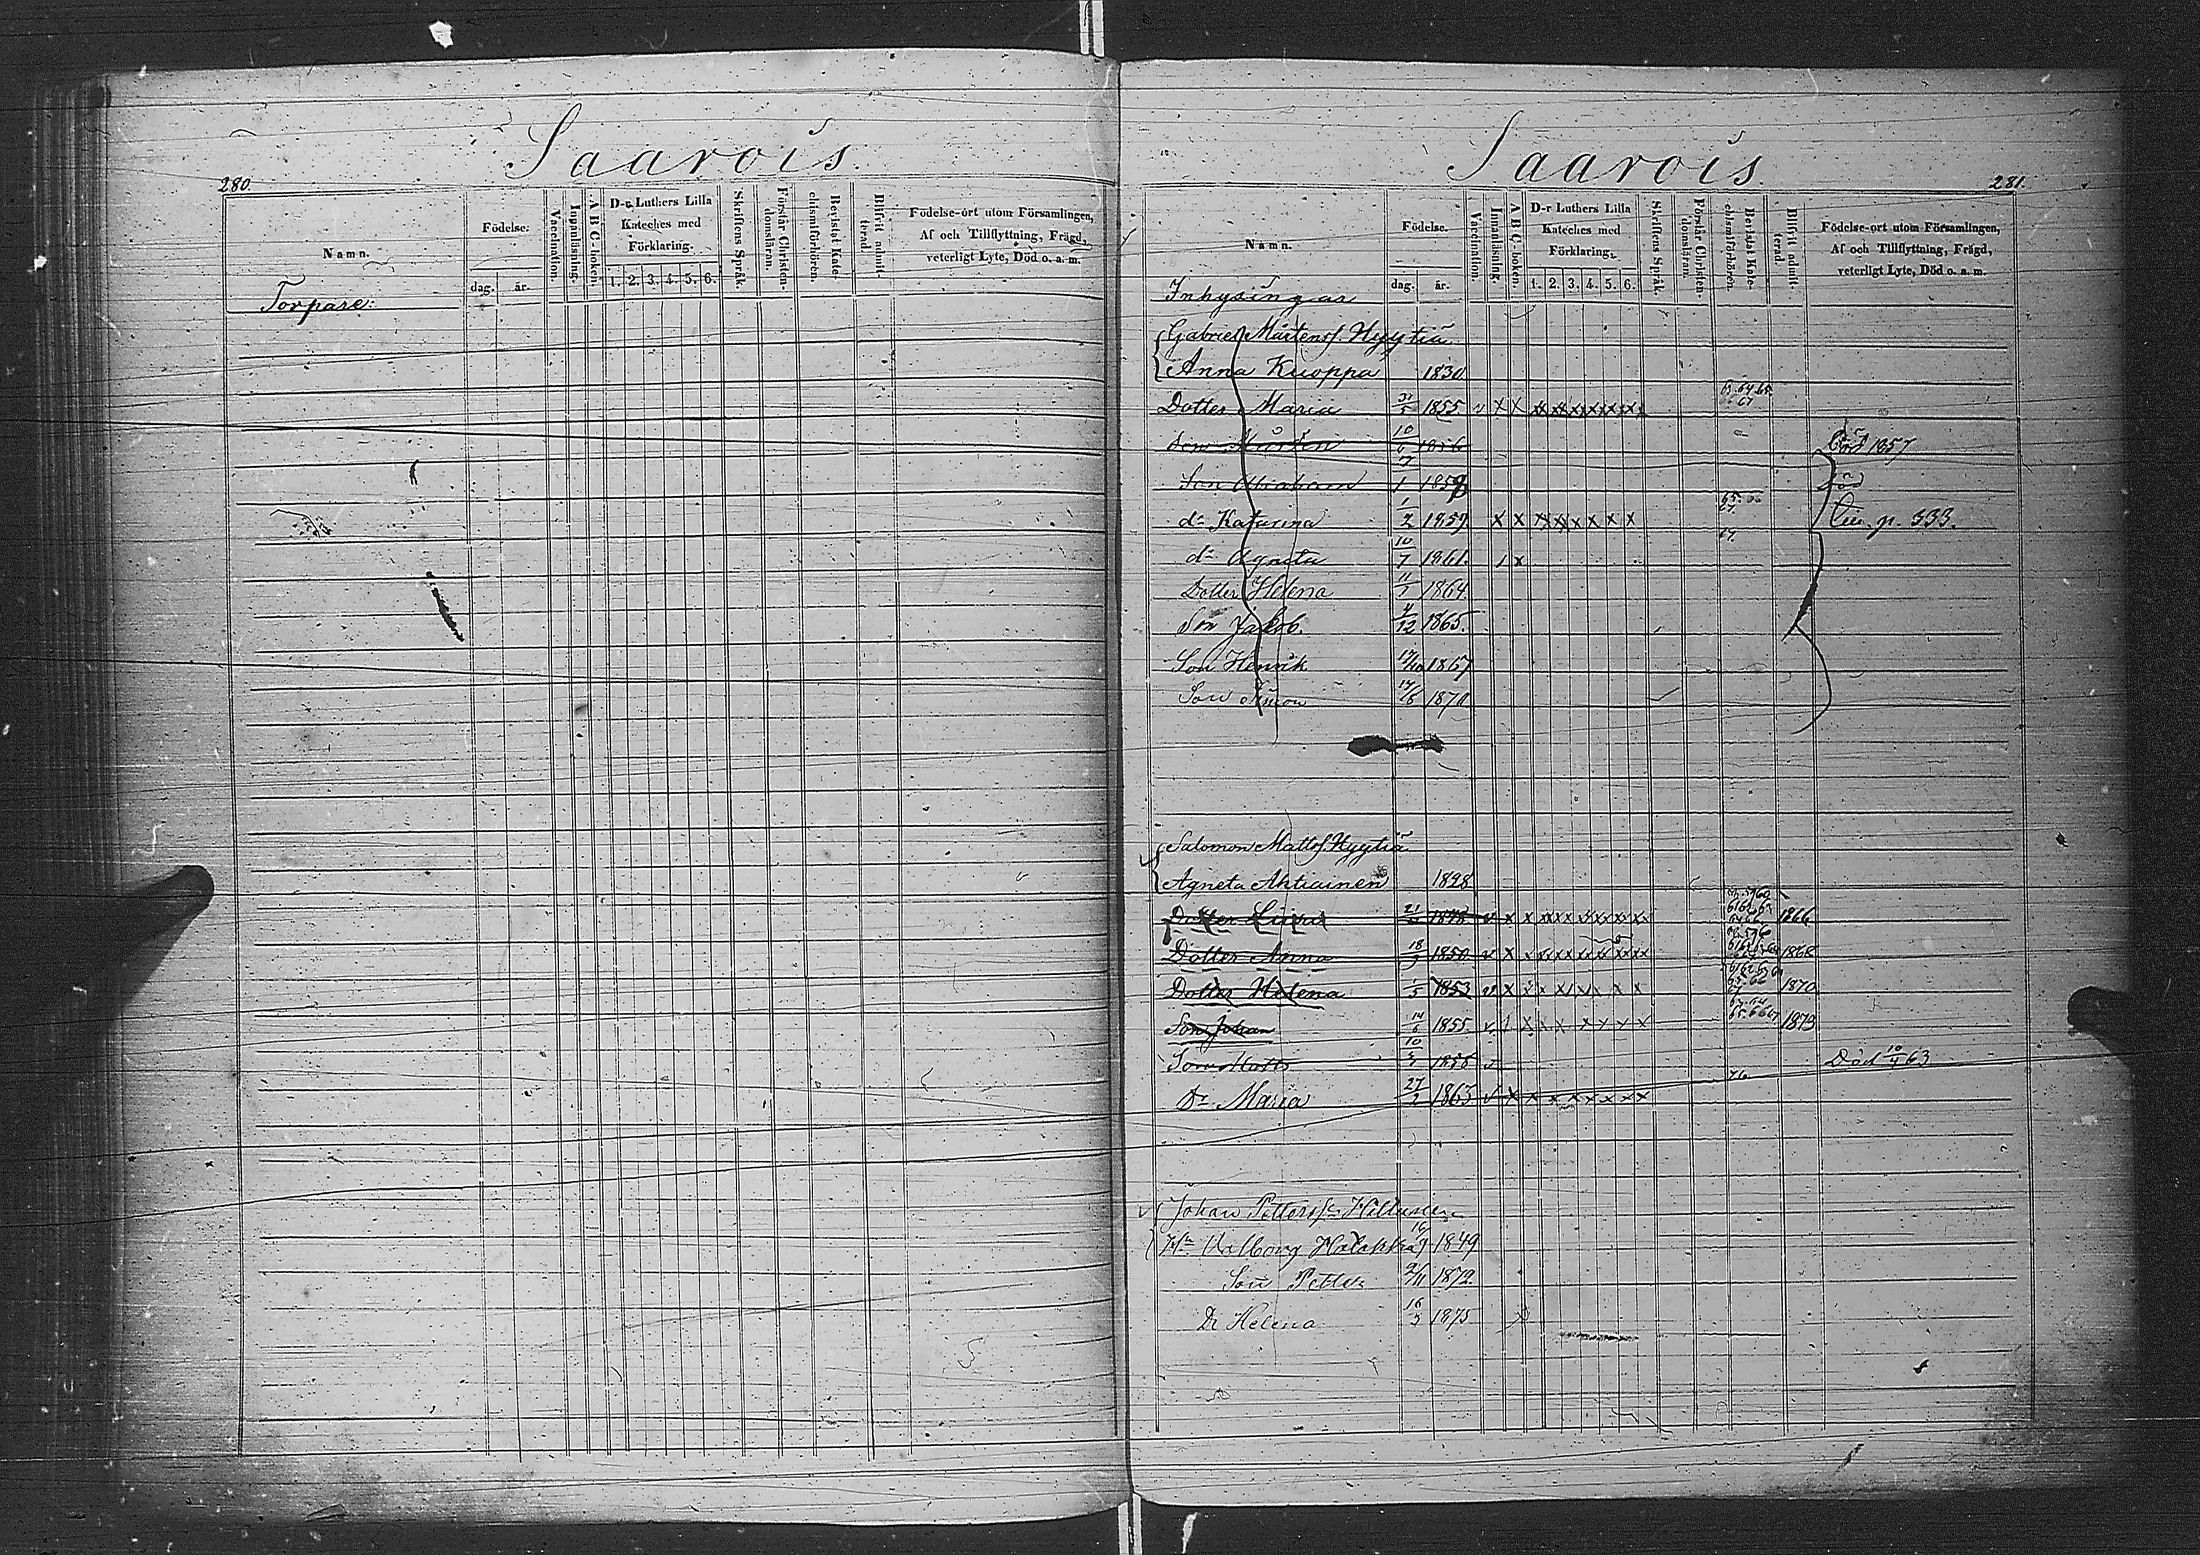 Saarois.
280.
Namn.
Födelse:
dag.
år.
Vaccination.
Innanläsning.
A B C-boken.
D-r Luthers Lilla
Kateches med
Förklaring.
1. 2. 3. 4. 5. 6.
Skriftens Språk.
Förstår Christen-
domsläran.
Bevistat Kate-
chismiförhören.
Blifvit admit-
terad
Födelse-ort utom Församlingen,
Af och Tillflyttning, Frägd,
veterligt Lyte, Död o. a. m.
Torpare:
Saarois.
281.
Namn.
Födelse.
dag.
år.
Vaccination.
Innanläsning.
A B C-boken.
D-r Luthers Lilla
Kateches med
Förklaring.
1. 2. 3. 4. 5. 6.
Skriftens Språk.
Förstår Christen-
domsläran.
Bevistat Kate-
chismiförhören.
Blifvit admit-
terad
Födelse-ort utom Församlingen,
Af och Tillflyttning, Frägd,
veterligt Lyte, Död o. a. m.
Inhysingar
Gabriel Mårtens. Hyytiä
Anna Kuoppa 1830
Dotter Maria 31/5 1855 v x x
Son Mårten 10/6 1856 Död 1857
Son Abraham 1858 Död
dr Katarina 1/2 1859 x x x x x x x x p. 333.
dr Agneta 10/7 1861. x
Dotter Helena 1864
Son Jakob. 4/12 1865.
Son Henrik 17/10 1867
Son Simon 1870
Salomon Matts. Hyytiä
Agneta Ahtiainen 1828
Dotter 1848 1866
Dotter Anna 18/9 1850 1868
Dotter Helena 1853 1870
Son Johan 14/6 1855 1873
Son Matts 1858 v Död 10/4 63
Dr Maria 27/2 1863
Johan Petterss. Hillunen
Hu Valborg 1849
Son Petter 2/11 1872
Dr Helena 16/3 1875